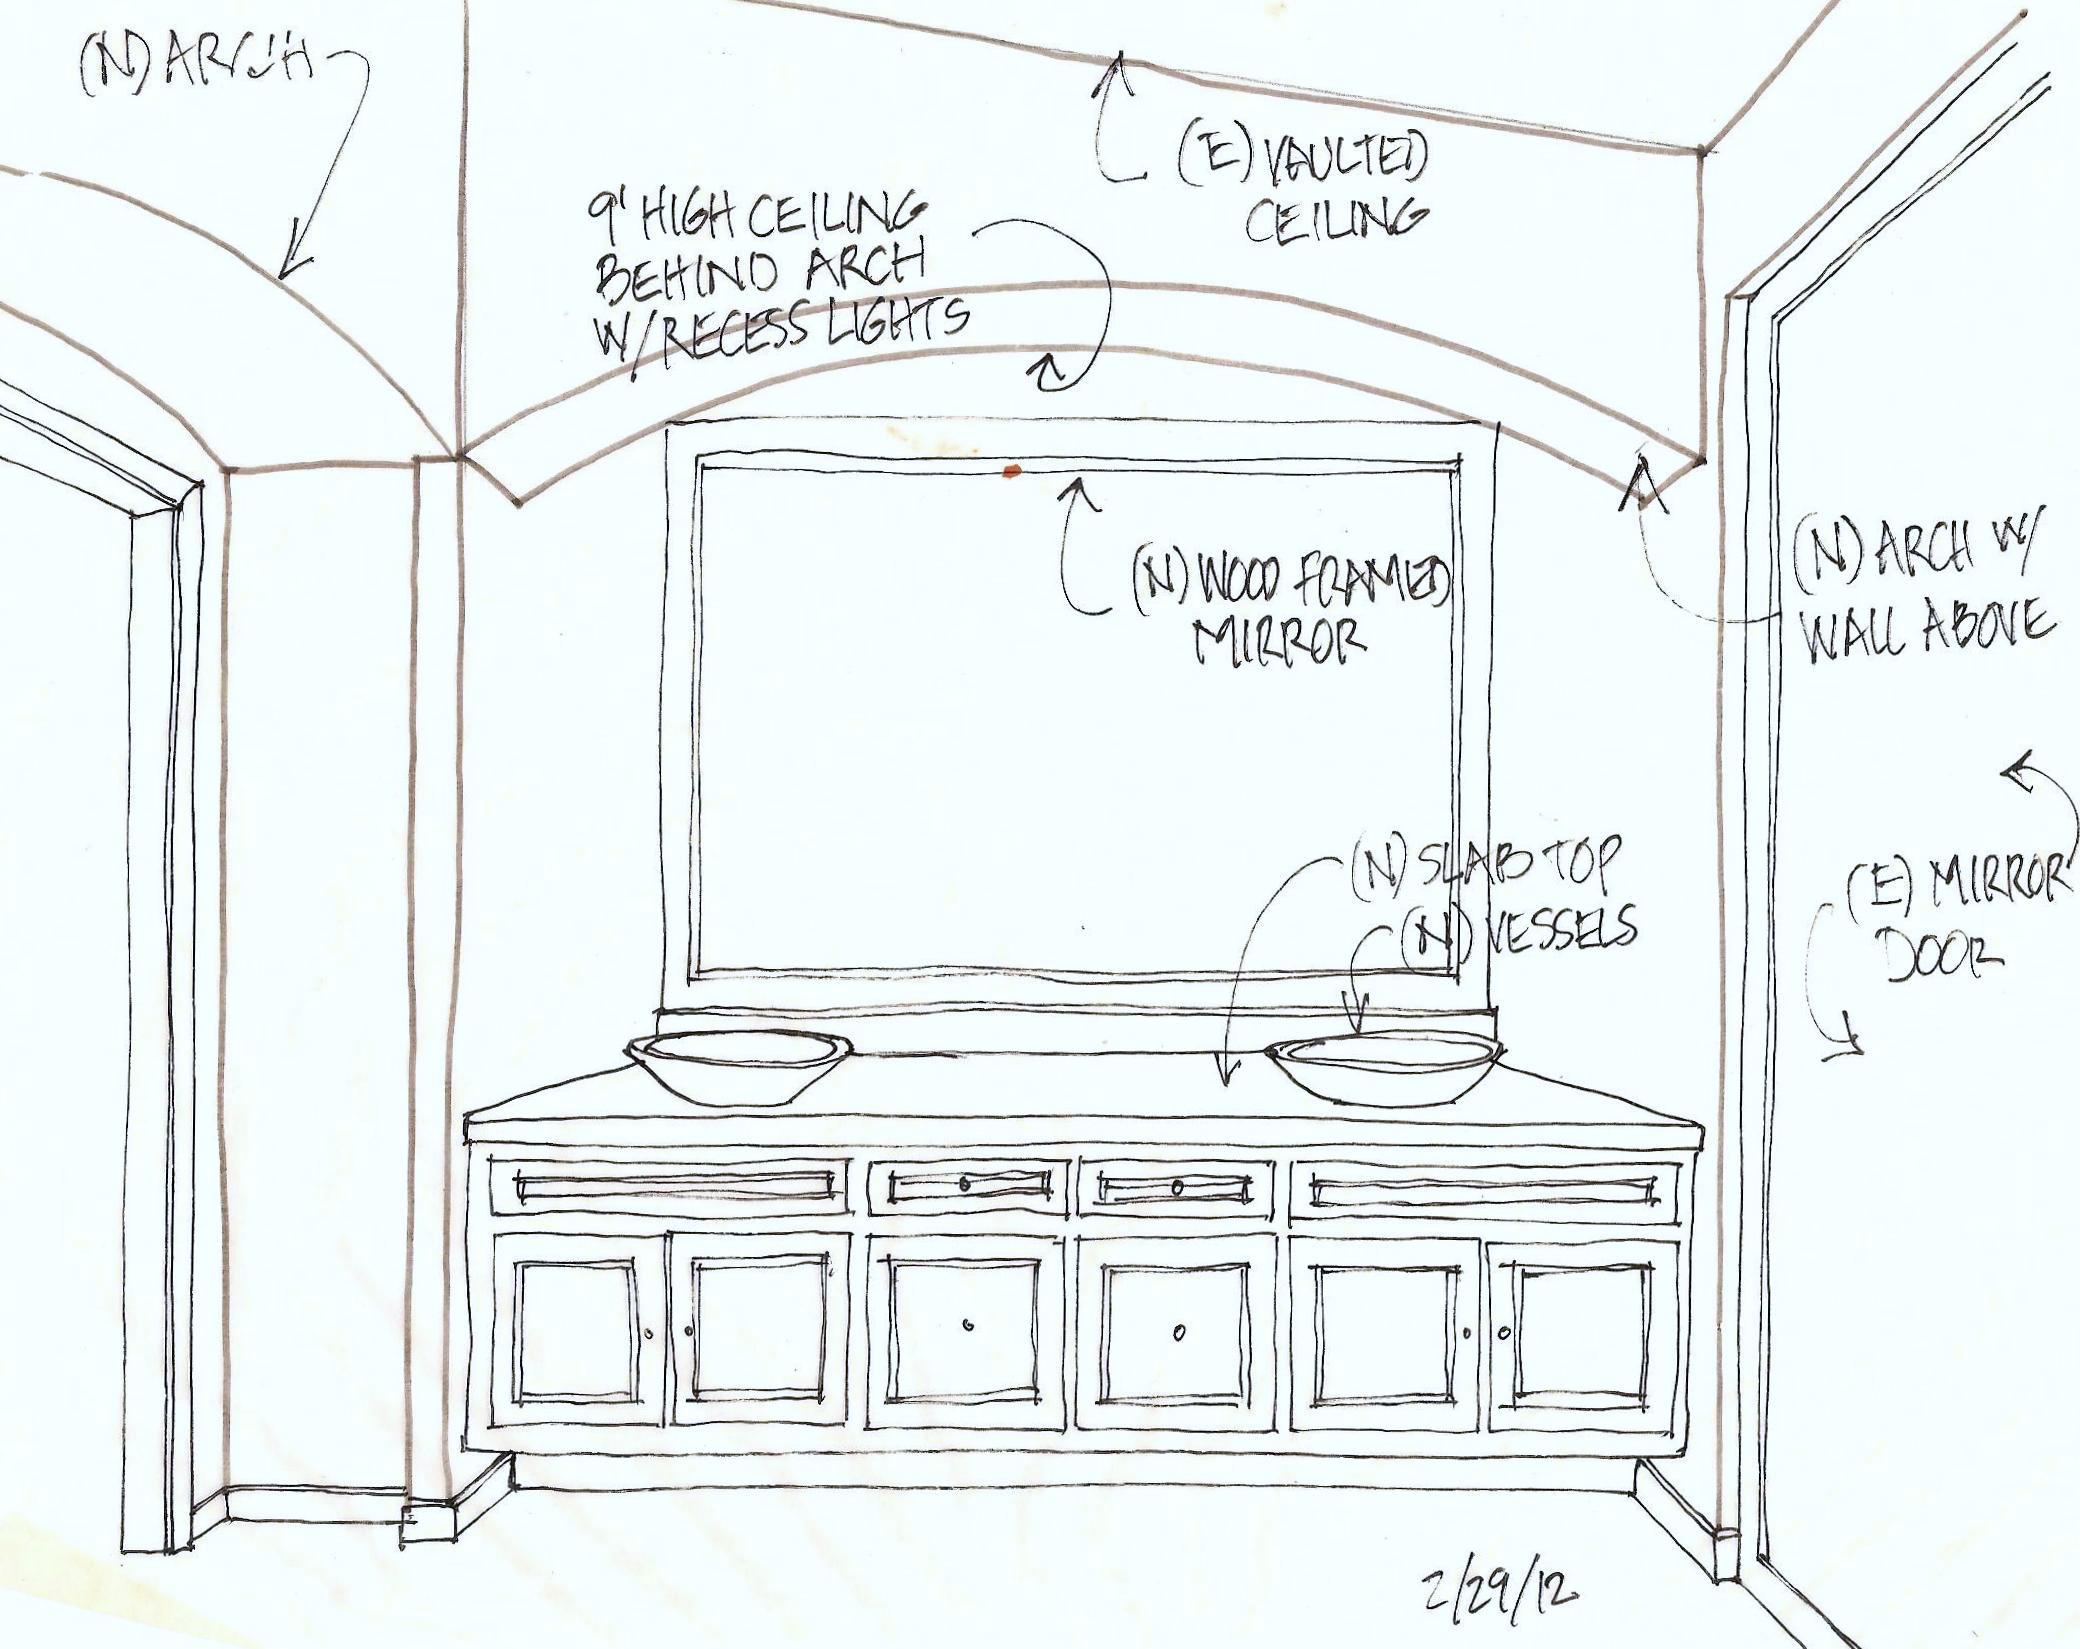 (N) ARCH
(E) VAULTED
CEILING
9' HIGH CEILING
BEHIND ARCH
W/RECESS LIGHTS
(N) WOOD FRAMED
MIRROR
(N) ARCH W/
WALL ABOVE
(N) SLAB TOP
(N) VESSELS
(E) MIRROR
DOOR
2/29/12